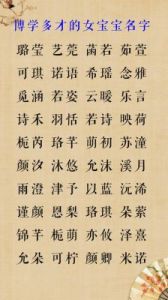 博学多才的女宝宝名字
璐莹 艺莞 菡若 茹萱
可琪 诺语 希瑶 念雅
觅涵 若姿 云暖
诗禾 羽恬 若荷 诗茵
栀芮 珞芊 萌初 玉
颜汐 沐悠 允沫 溪月
雨澄 津予 以蓝 沅浠
谨颜 恩梨 珞瑶 朵萦
锦芊 栀萌 亦攸 泽熹
允朵 可柠 颜卿 米诺